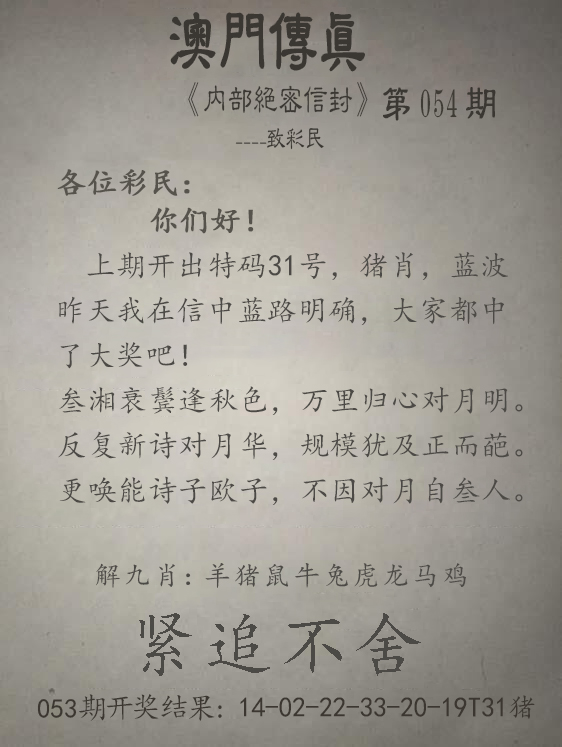 澳門傳眞
《内部絕密信封》第054期
----致彩民
各位彩民：
你们好！
上期开出特码31号，猪肖，蓝波
昨天我在信中蓝路明确，大家都中
了大奖吧！
叁湘衰鬓逢秋色，万里归心对月明。
反复新诗对月华，规模犹及正而葩。
更唤能诗子欧子，不因对月自叁人。
解九肖：羊猪鼠牛兔虎龙马鸡
紧追不舍
053期开奖结果：14-02-22-33-20-19T31猪